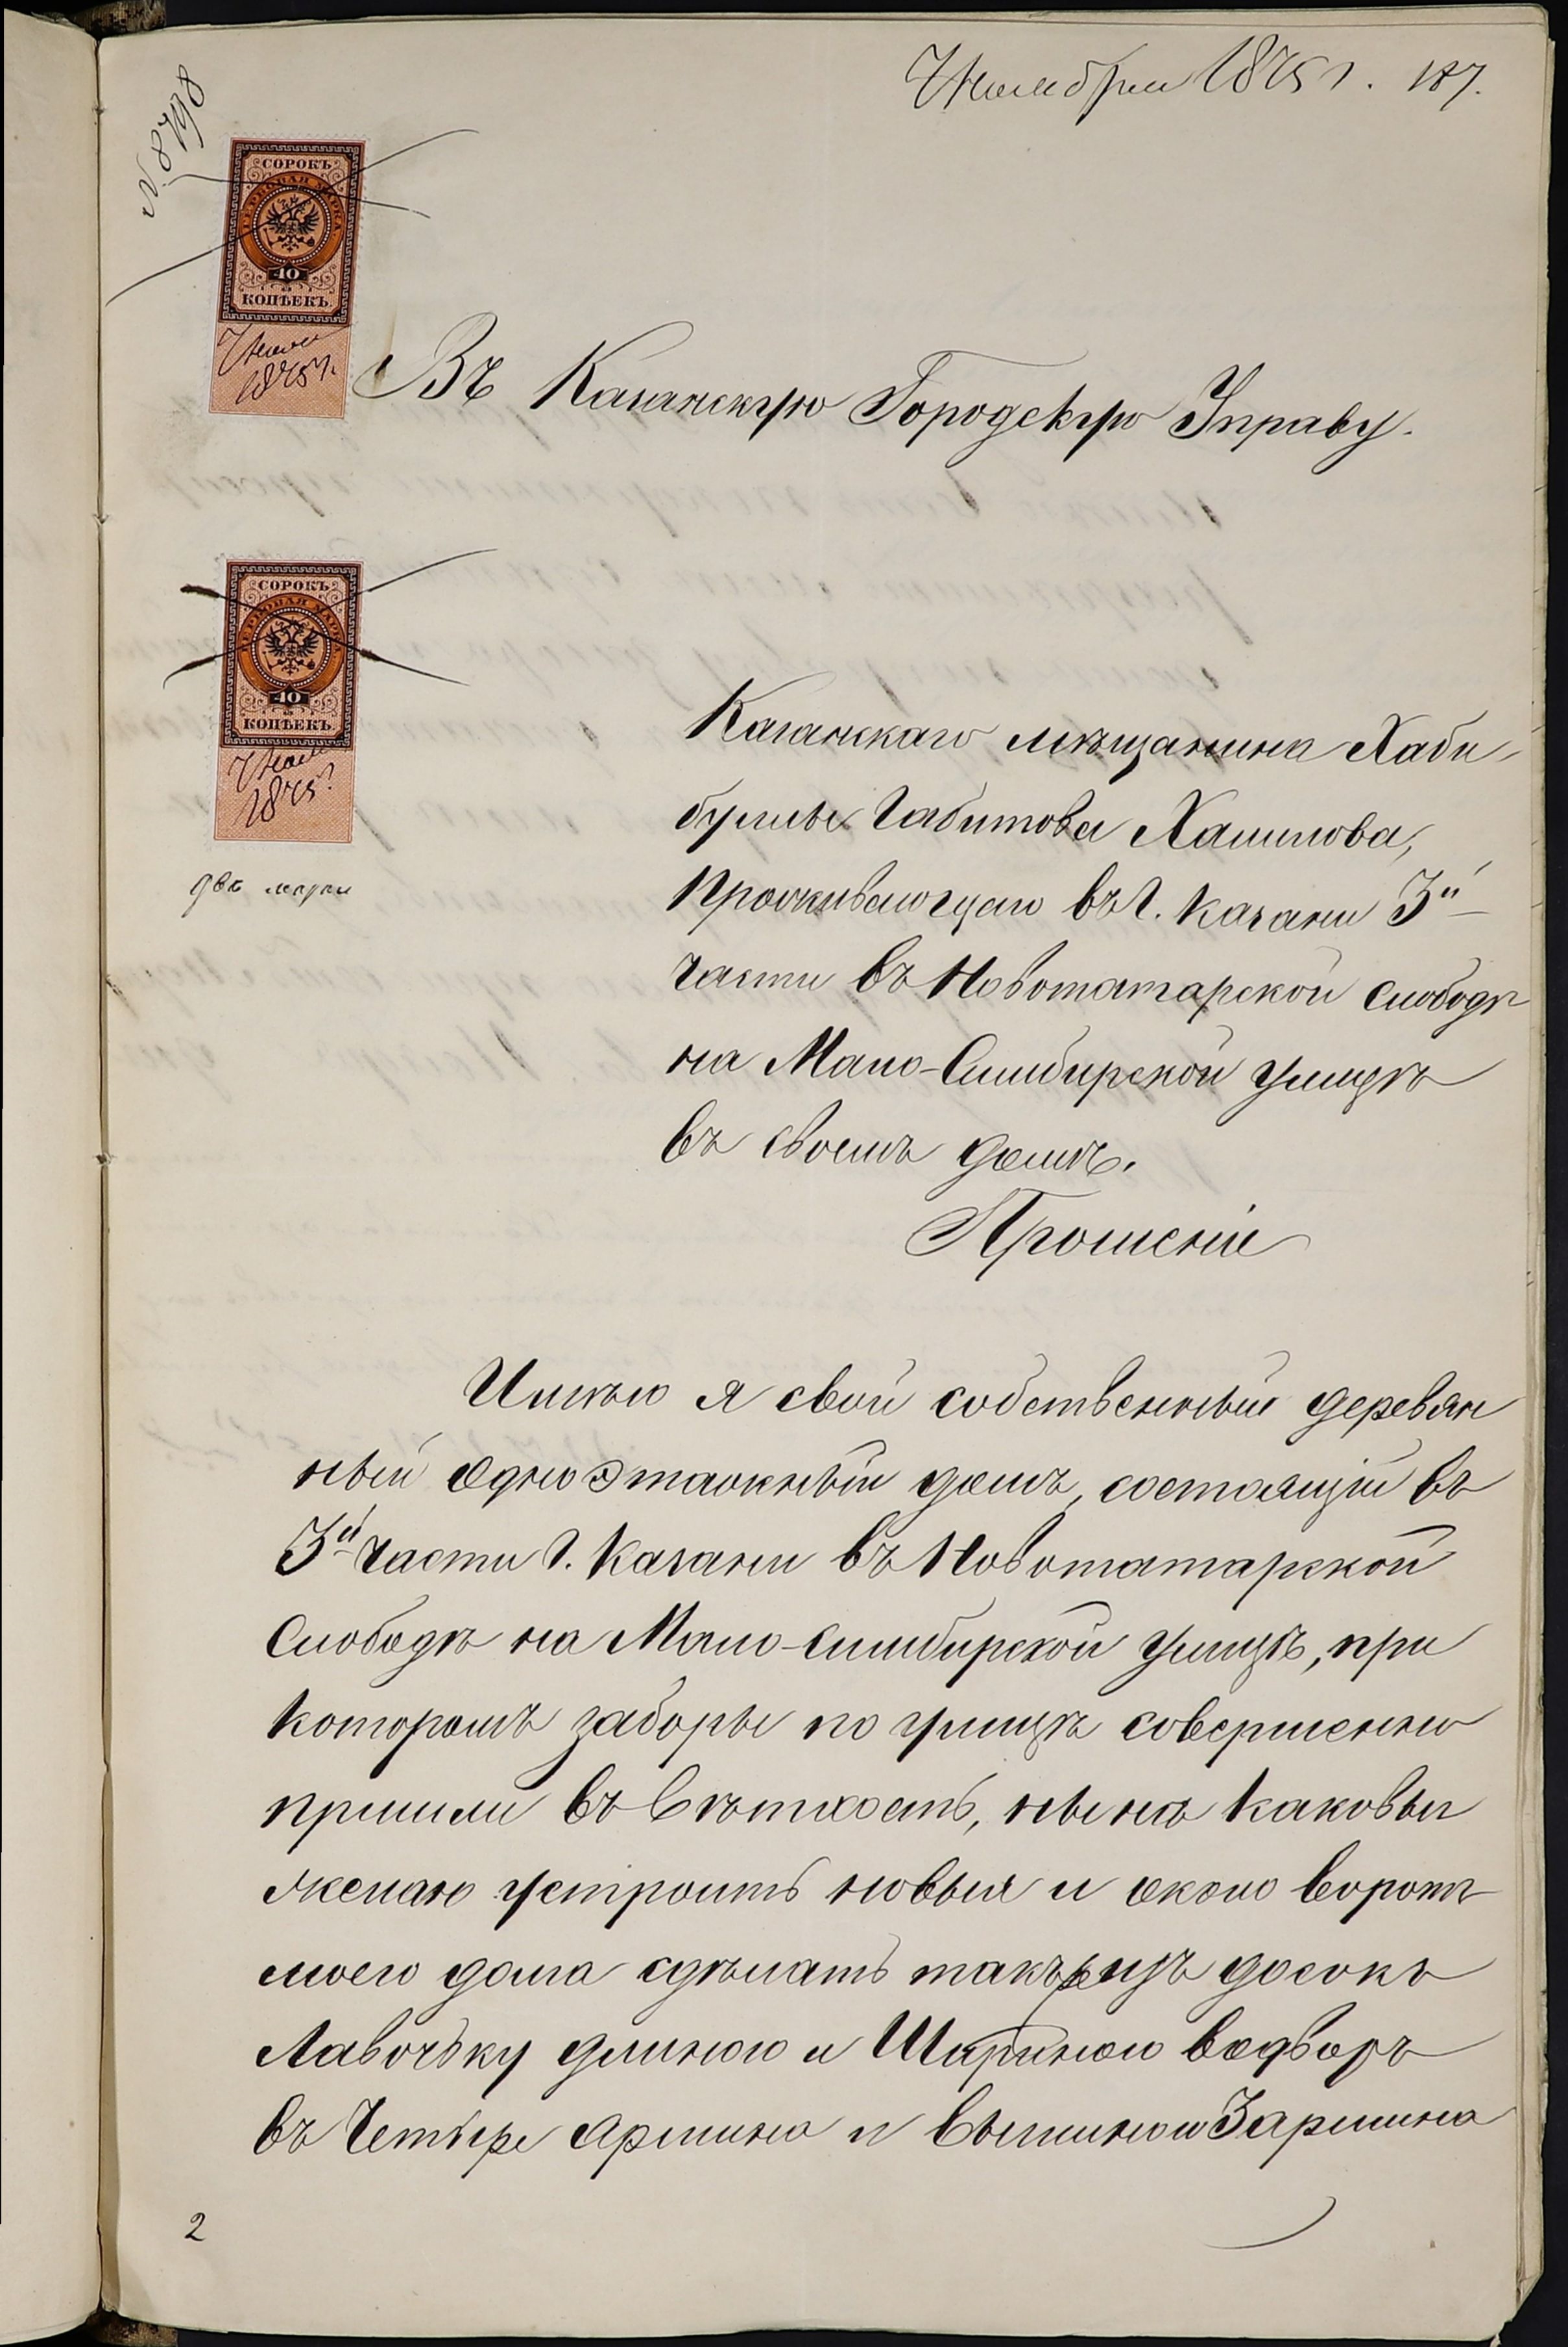 7 Ноября 1875 г. 187.
№ 8798
СОРОКЪ
ГЕРБОВАЯ МАРКА
40
КОПѢЕКЪ
7 Нояб
1875 г.
Въ Казанскую Городскую Управу.
СОРОКЪ
ГЕРБОВАЯ МАРКА
40
КОПѢЕКЪ
7 Нояб
1875 г
двѣ марки
Казанскаго мѣщанина Хаби-
буллы Габитова Халилова,
проживающаго въ г. Казани 3й
части въ Новотатарской слободѣ
на Мало-Симбирской улицѣ
въ своемъ домѣ.
Прошеніе
Имѣю я свой собственный деревян
ный одноэтажный домъ, состоящій въ
3й части г. Казани въ Новотатарской
Слободѣ на Мало-Симбирской улицѣ, при
которомъ заборы по улицѣ совершенно
пришли въ вѣтхость, нынѣ каковыя
желаю устроить новыя и около воротъ
моего дома сдѣлать изъ досокъ
Лавочьку длиною и Шириною водворъ
въ Четыре аршина и вышиною 3 аршина
2